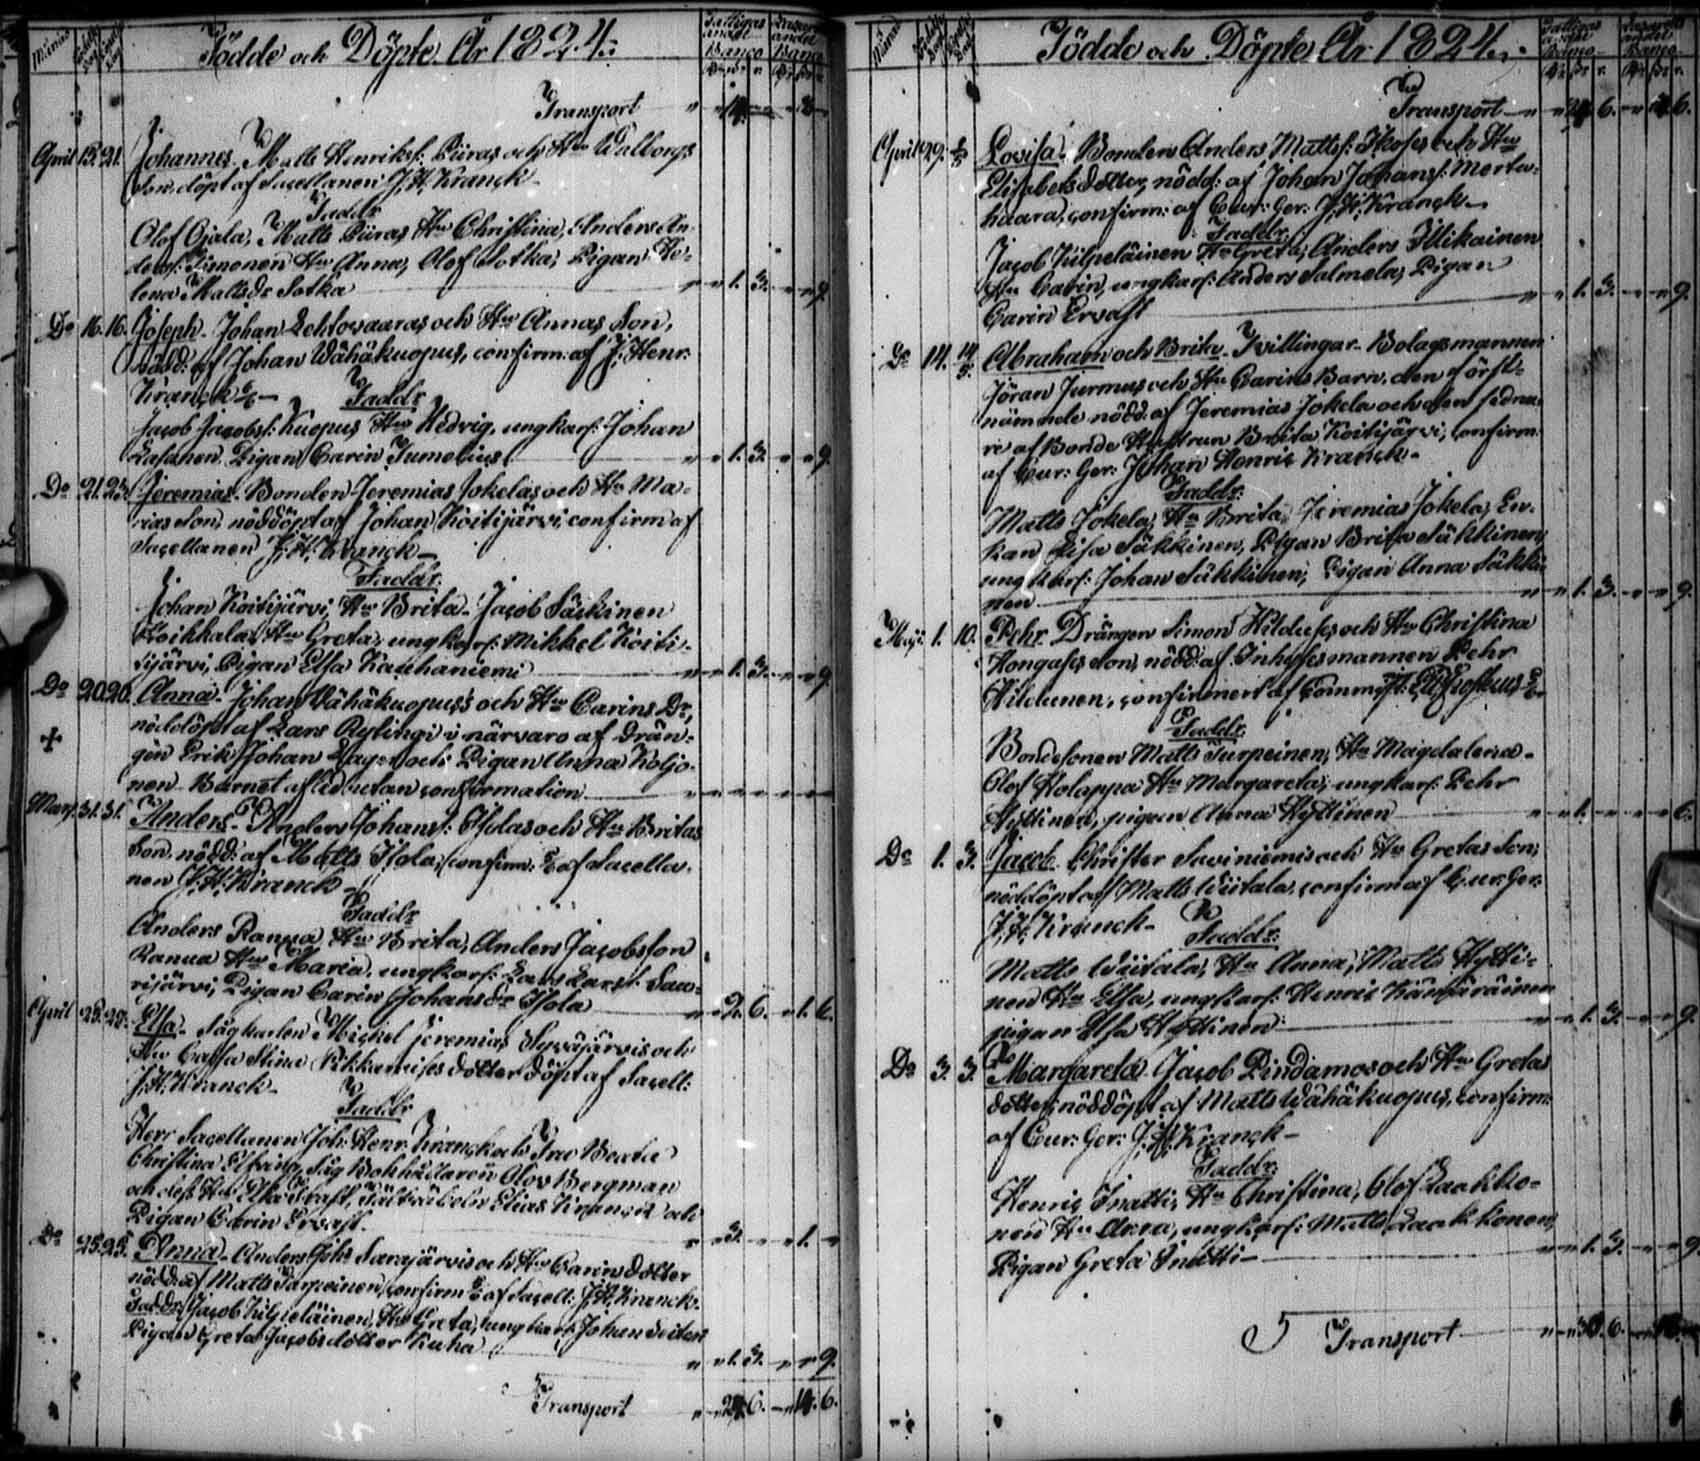 Födde och Döpte År 1824.
Transport
April 15. 21. Johannes. Matts Henrikss: Piiras och Hu Walborgs
Son, döpt af Sacellanen J. H. Kranck
Faddr
Olof Ojala, Matts Piiras, Hu Christina, Anders An-
derss: Simonen Hu Anna, Olof Sotka, Pigan He-
lena Mattsdr Sotka 1. 3. 9.
Do 16. 16. Joseph. Johan Lehtovaaras och Hu Annas Son,
nödd: af Johan Wähäkuopus, confirm: af J. Henr:
Kranck
Faddr
Jacob Jacobss: Kuopus, Hu Hedvig, ungkarl: Johan
Lasanen. Pigan Carin Tumelius 1. 3. 9.
Do 21. 25. Jeremias. Bonden Jeremias Jokelas och Hu Ma-
rias Son, nöddöpt af Johan Koitijärvi, confirm af
Sacellanen J. H. Kranck
Faddr.
Johan Koitijärvi, Hu Brita. Jacob Säkkinen
Hoikkala, Hu Greta, ungkarl: Mikkel Koiti-
järvi, Pigan Elsa Kauhaniemi 1. 3. 9
Do 20. 20. Anna. Johan Wähäkuopus's och Hu Carins Dr,
nöddöpt af Lars Rytingi i närvaro af drän-
gen Erik Johan och Pigan Anna Koljo-
nen. Barnet afled utan confirmation
Mars. 31. 31. Anders. Anders Johanss: Isolas och Hu Britas
Son, nödd: af Matts Isola, confirm: af Sacella-
nen J. H. Kranck
Faddr
Anders Ranua, Hu Brita, Anders Jacobsson
Ranua Hu Maria, ungkarl: Lars Larss: Saa-
rijärvi, Pigan Carin Johansdr Isola 2. 6. 1. 6.
April 25. 27. Elsa. Sågkarlen Michel Jeremias Syväjärvis och
Hu Caisa Stina dotter döpt af Sacell:
J. H. Kranck
Faddr
Herr Sacellanen Joh: Henr: Kranck och Fru Beata
Christina Elfving, Såg Bokhållaren Olov Bergman
och dess Hu Elsa Ervast, Elias Kranck och
Pigan Carin Ervast. 3. 1.
Do 25. 25. Anna. Anders Johs Sarajärvis och Hu Carins dotter
nödd: af Matts Turpeinen, confirm af Sacell: J. H. Kranck.
Faddr: Jacob Kilpeläinen, Hu Greta, ungkarl: Johan
Pigan Greta Jacobsdotter Kuha 1. 3. 9.
Transport 24. 6. 14. 6.
Födde och Döpte År 1824.
Transport 24 6. 14 6.
April 29. Lovisa. Bonden Anders Mattss: och Hu
Elisabets dotter, nödd: af Johan Johanss: Merta-
haara, confirm: af Cur: Ger: J. H. Kranck
Faddr
Jacob Kilpeläinen Hu Greta, Anders Illikainen
Hu Carin, ungkarl: Anders Salmela, Pigan
Carin Ervast 1. 3. 9.
Do 14. 14/5. Abraham och Brita. Tvillingar. Bolagsmannen
Jöran Jurmus och Hu Carins Barn, den först-
nämnde nödd: af Jeremias Jokela och den sedna-
re af Bonde Hustrun Brita Koitijärvi, confirm:
af Cur: Ger: Johan Henric Kranck.
Faddr:
Matts Jokela, Hu Brita, Jeremias Jokela, En-
kan Lisa Säkkinen, Pigan Brita Säkkinen,
ungkarl: Johan Säkkinen, Pigan Anna Säkki-
nen 1. 3. 9.
Maji. 1. 10. Pehr. Drängen Simon och Hu Christina
Hongas Son, nödd: af Inhysesmannen Pehr
Hildunen, confirmert af
Faddr
Bondesonen Matts Turpeinen, Hu Magdalena.
Olof Holappa Hu Margareta, ungkarl: Pehr
Hyttinen, pigan Anna Hyttinen 1. 6.
Do 1. 3. Jacob. Christer Saviniemis och Hu Gretas Son,
nöddöpt af Matts Wiitala, confirm af Cur: Ger:
J. H. Kranck.
Faddr.
Matts Wiitala, Hu Anna, Matts Hytti-
nen Hu Elsa, ungkarl: Henric Känsäräinen
pigan Elsa Hyttinen 1. 3. 9.
Do 3. 3. Margareta. Jacob Pindamos och Hu Gretas
dotter, nöddöpt af Matts Wähäkuopus, confirm:
af Cur: Ger: J. H. Kranck
Faddr.
Henric Inatti, Hu Christina, Olof Laakko-
nen Hu Anna, ungkarl: Matts Laakkonen,
Pigan Greta Inatti 1. 3. 9.
Transport